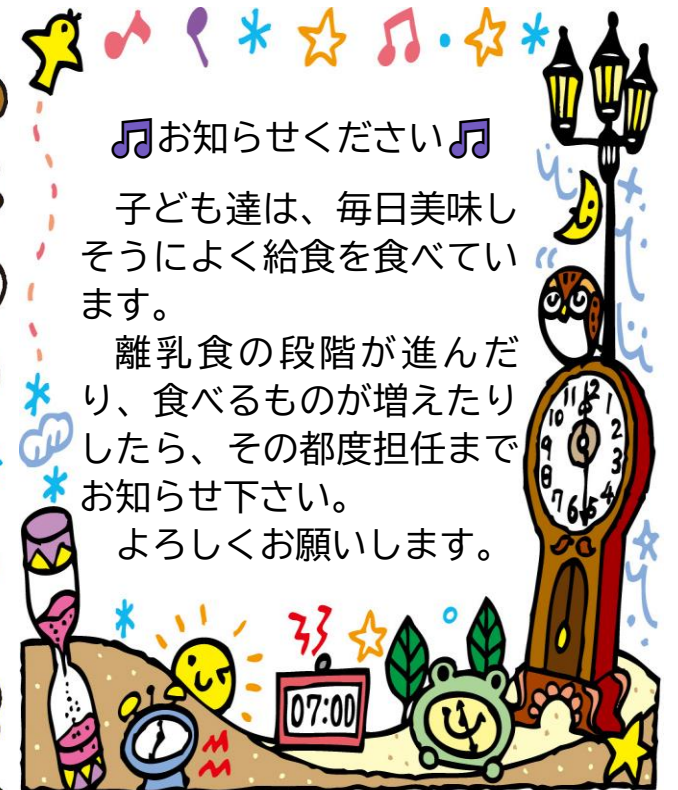 🎵お知らせください🎵
子ども達は、毎日美味し
そうによく給食を食べてい
ます。
離乳食の段階が進んだ
り、食べるものが増えたり
したら、その都度担任まで
お知らせ下さい。
よろしくお願いします。
11 12 1
10 2
9 3
8 4
7 6 5
07:00